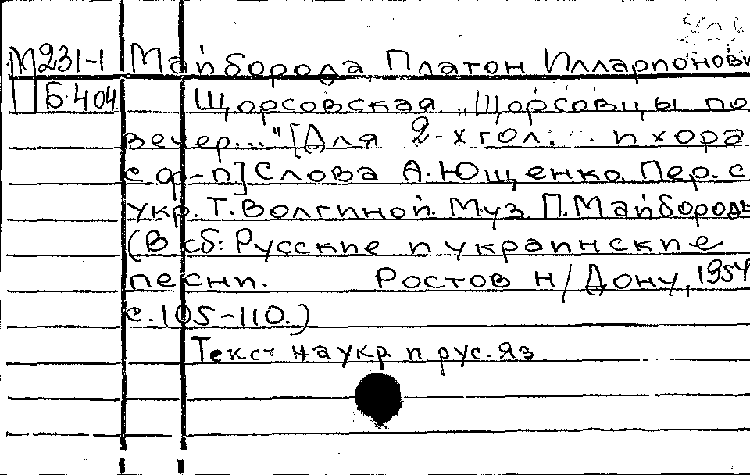 М231-1 Майборода Платон Илларионови
Б.404 Щорсовская „Щорсовцы по
вечер..." [Для 2-х гол. ... и хора
с ф-п] Слова А.Ющенко. Пер. с
укр. Т.Волгиной. Муз. П.Майбороды
(В сб: Русские и украинские
песни. Ростов н/Дону, 1954
с.105-110.)
Текст на укр и рус. яз